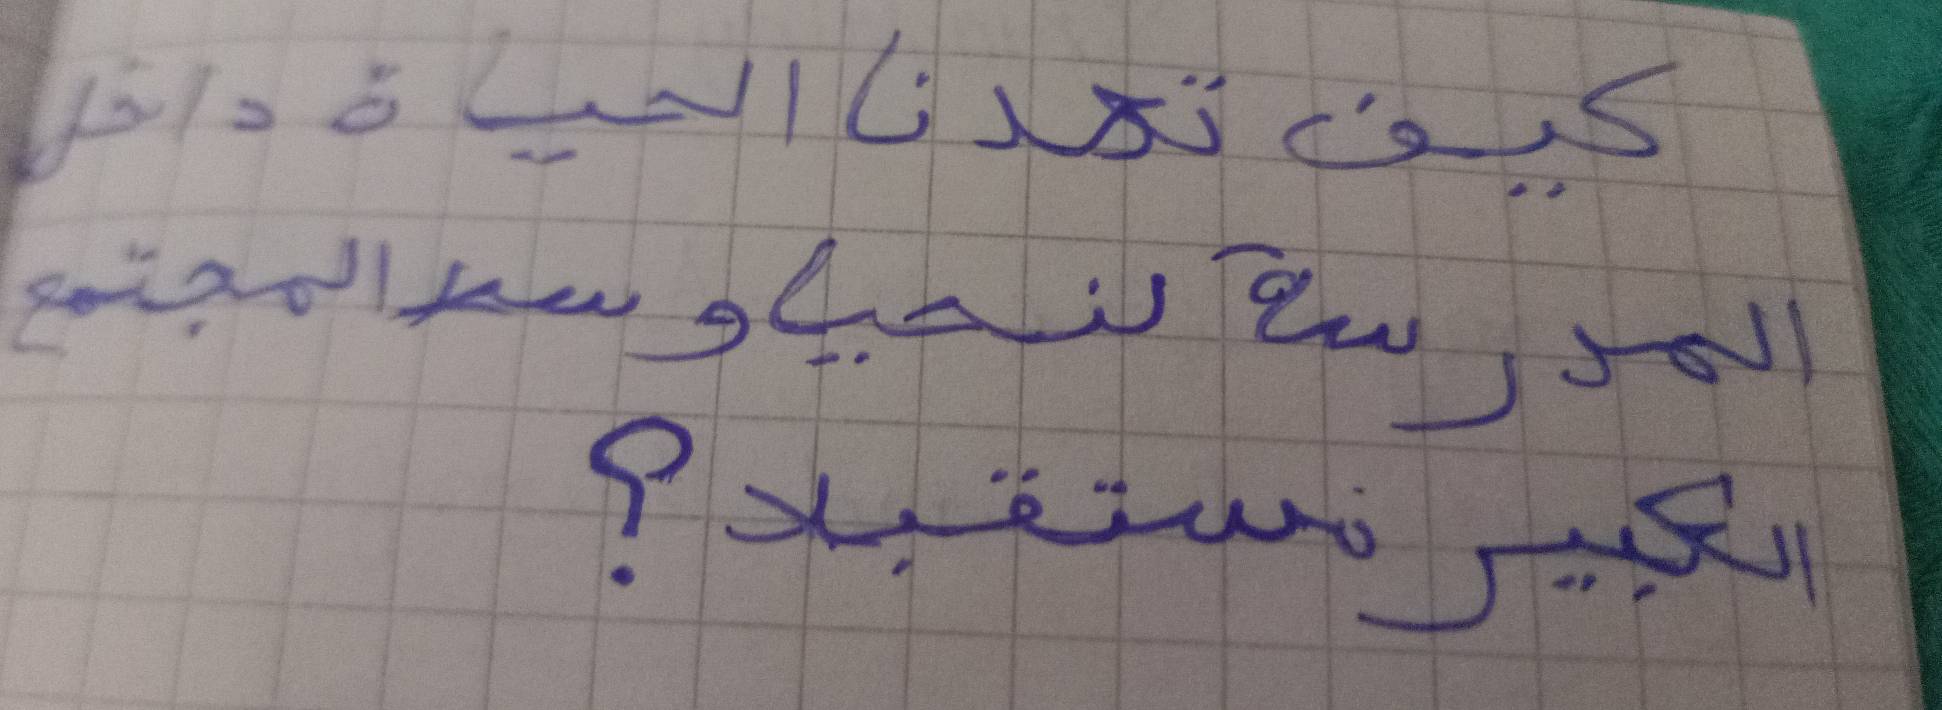 كيف تعدنا الحياة داخل
المدرسة لنحيا وسط المجتمع
الكبير مستقبلا ؟